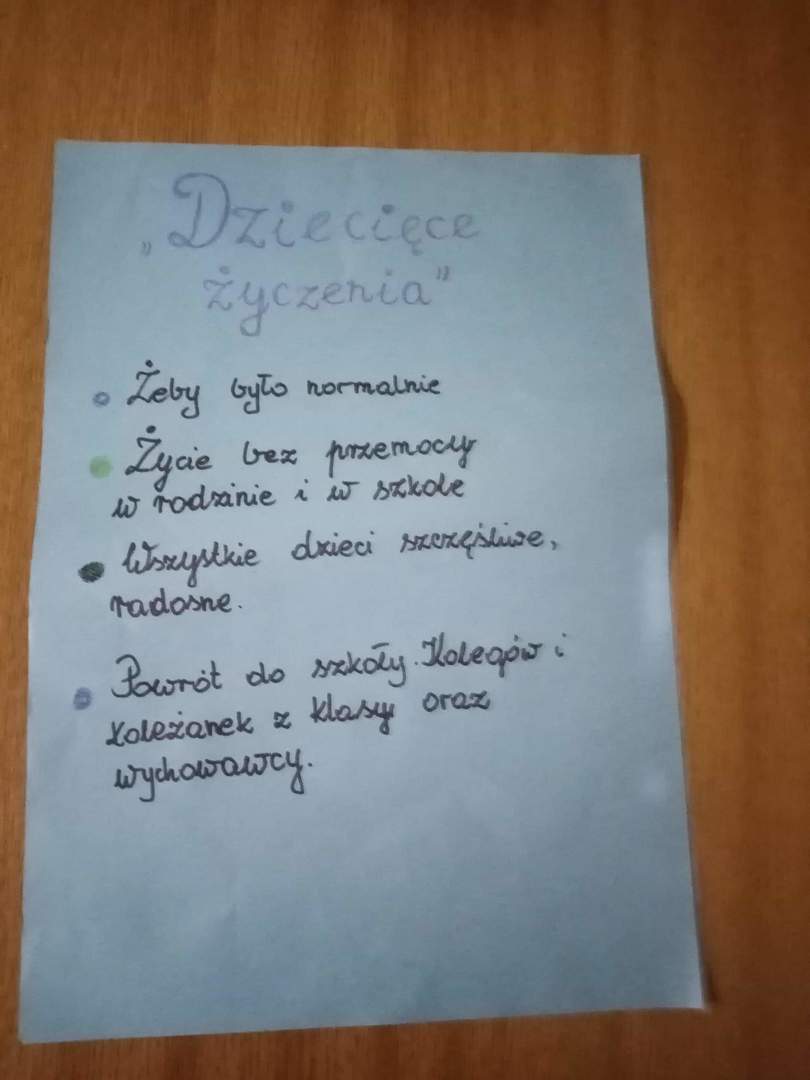 „Dziecięce
życzenia"
Żeby było normalnie
Życie bez przemocy
w rodzinie i w szkole
Wszystkie dzieci szczęśliwe,
radosne.
Powrót do szkoły. Kolegów i
koleżanek z klasy oraz
wychowawcy.